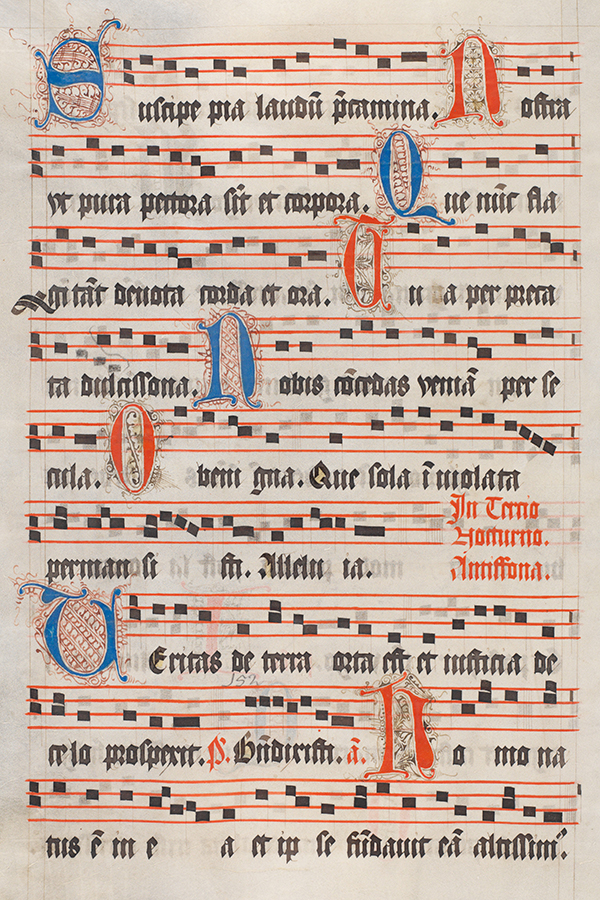 Suscipe pia laudū p̄camina. Nostra
vt pura pectora sīt et corpora. Que nūc fla
gitāt deuota corda et ora. Tu da per preca
ta dulcissona. Nobis cōcedas veniā per se
cula. O benigna. Que sola īuiolata
permansisti. Alleluia.
In Tercio
Nocturno.
Antiffona.
VEritas de terra orta est et iusticia de
celo prospexit. P̄s. Bn̄dixisti. ā. Homo na
tus ē in ea et ipse fūdauit eā altissimꝰ.